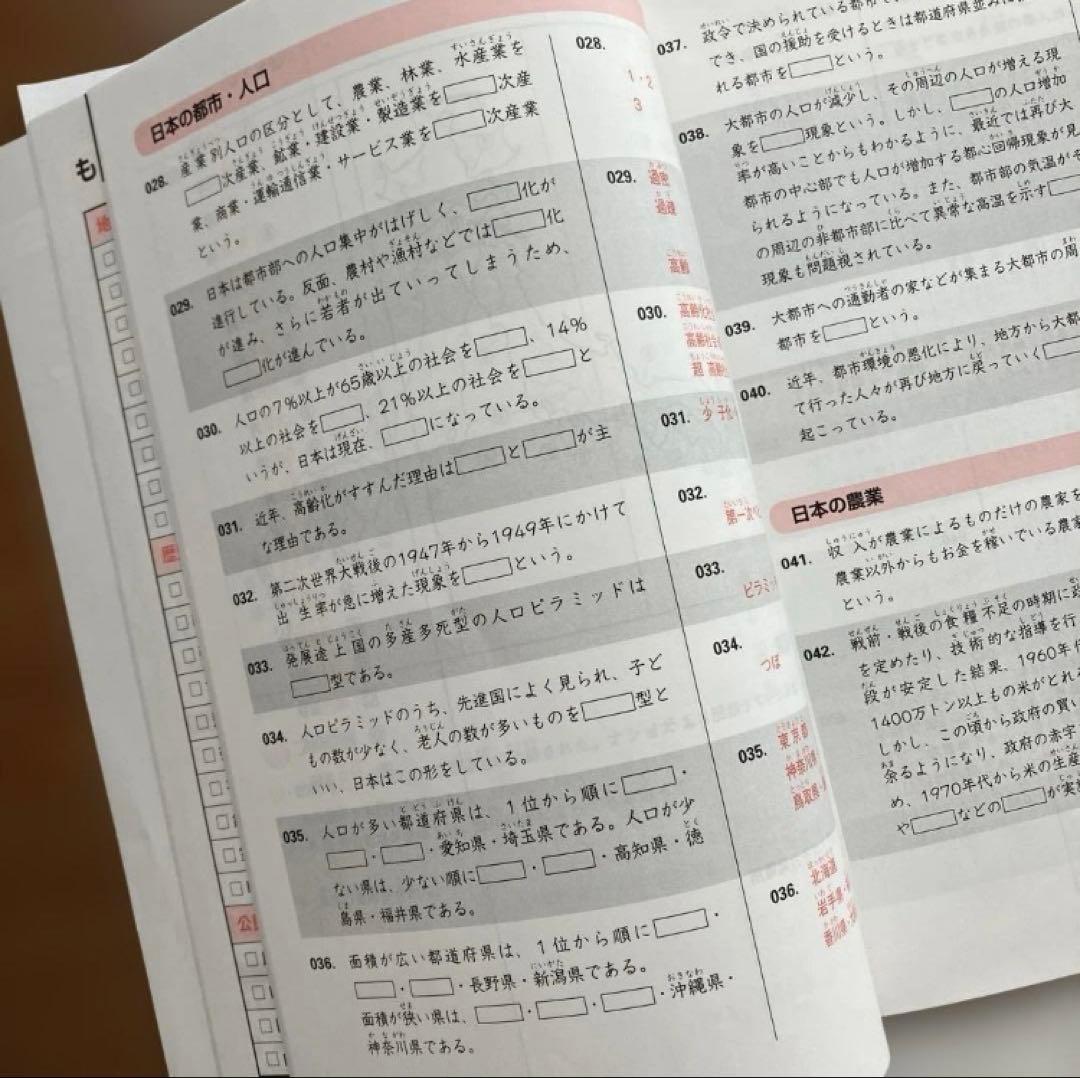 も
地
歴
公
日本の都市・人口
028. 産業別人口の区分として、農業、林業、水産業を
□次産業、鉱業・建設業・製造業を□次産
業、商業・運輸通信業・サービス業を□次産業
という。
029. 日本は都市部への人口集中がはげしく、□化が
進行している。反面、農村や漁村などでは□化
が進み、さらに若者が出ていってしまうため、
□化が進んでいる。
030. 人口の7%以上が65歳以上の社会を□、14%
以上の社会を□、21%以上の社会を□と
いうが、日本は現在、□になっている。
031. 近年、高齢化がすすんだ理由は□と□が主
な理由である。
032. 第二次世界大戦後の1947年から1949年にかけて
出生率が急に増えた現象を□という。
033. 発展途上国の多産多死型の人口ピラミッドは
□型である。
034. 人口ピラミッドのうち、先進国によく見られ、子ど
もの数が少なく、老人の数が多いものを□型と
いい、日本はこの形をしている。
035. 人口が多い都道府県は、1位から順に□・
□・□・愛知県・埼玉県である。人口が少
ない県は、少ない順に□・□・高知県・徳
島県・福井県である。
036. 面積が広い都道府県は、1位から順に□・
□・□・長野県・新潟県である。
面積が狭い県は、□・□・□・沖縄県・
神奈川県である。
028.
1・2
3
029. 過密
過疎
高齢
030. 高齢化社
高齢社会
超高齢
031. 少子化
032.
第一次ベ
033.
ピラミッ
034.
つぼ
035. 東京都
神奈川県
鳥取県
036. 北海道
岩手県
香川県
037. 政令で決められている都市
でき、国の援助を受けるときは都道府県並みに
れる都市を□という。
038. 大都市の人口が減少し、その周辺の人口が増える現
象を□現象という。しかし、□の人口増加
率が高いことからもわかるように、最近では再び大
都市の中心部でも人口が増加する都心回帰現象が見
られるようになっている。また、都市部の気温がそ
の周辺の非都市部に比べて異常な高温を示す□
現象も問題視されている。
039. 大都市への通勤者の家などが集まる大都市の周
都市を□という。
040. 近年、都市環境の悪化により、地方から大都
て行った人々が再び地方に戻っていく□
起こっている。
日本の農業
041. 収入が農業によるものだけの農家を
農業以外からもお金を稼いでいる農家
という。
042. 戦前・戦後の食糧不足の時期に政
を定めたり、技術的な指導を行
段が安定した結果、1960年代
1400万トン以上もの米がとれる
しかし、この頃から政府の買い
余るようになり、政府の赤字
め、1970年代から米の生産
や□などの□が実